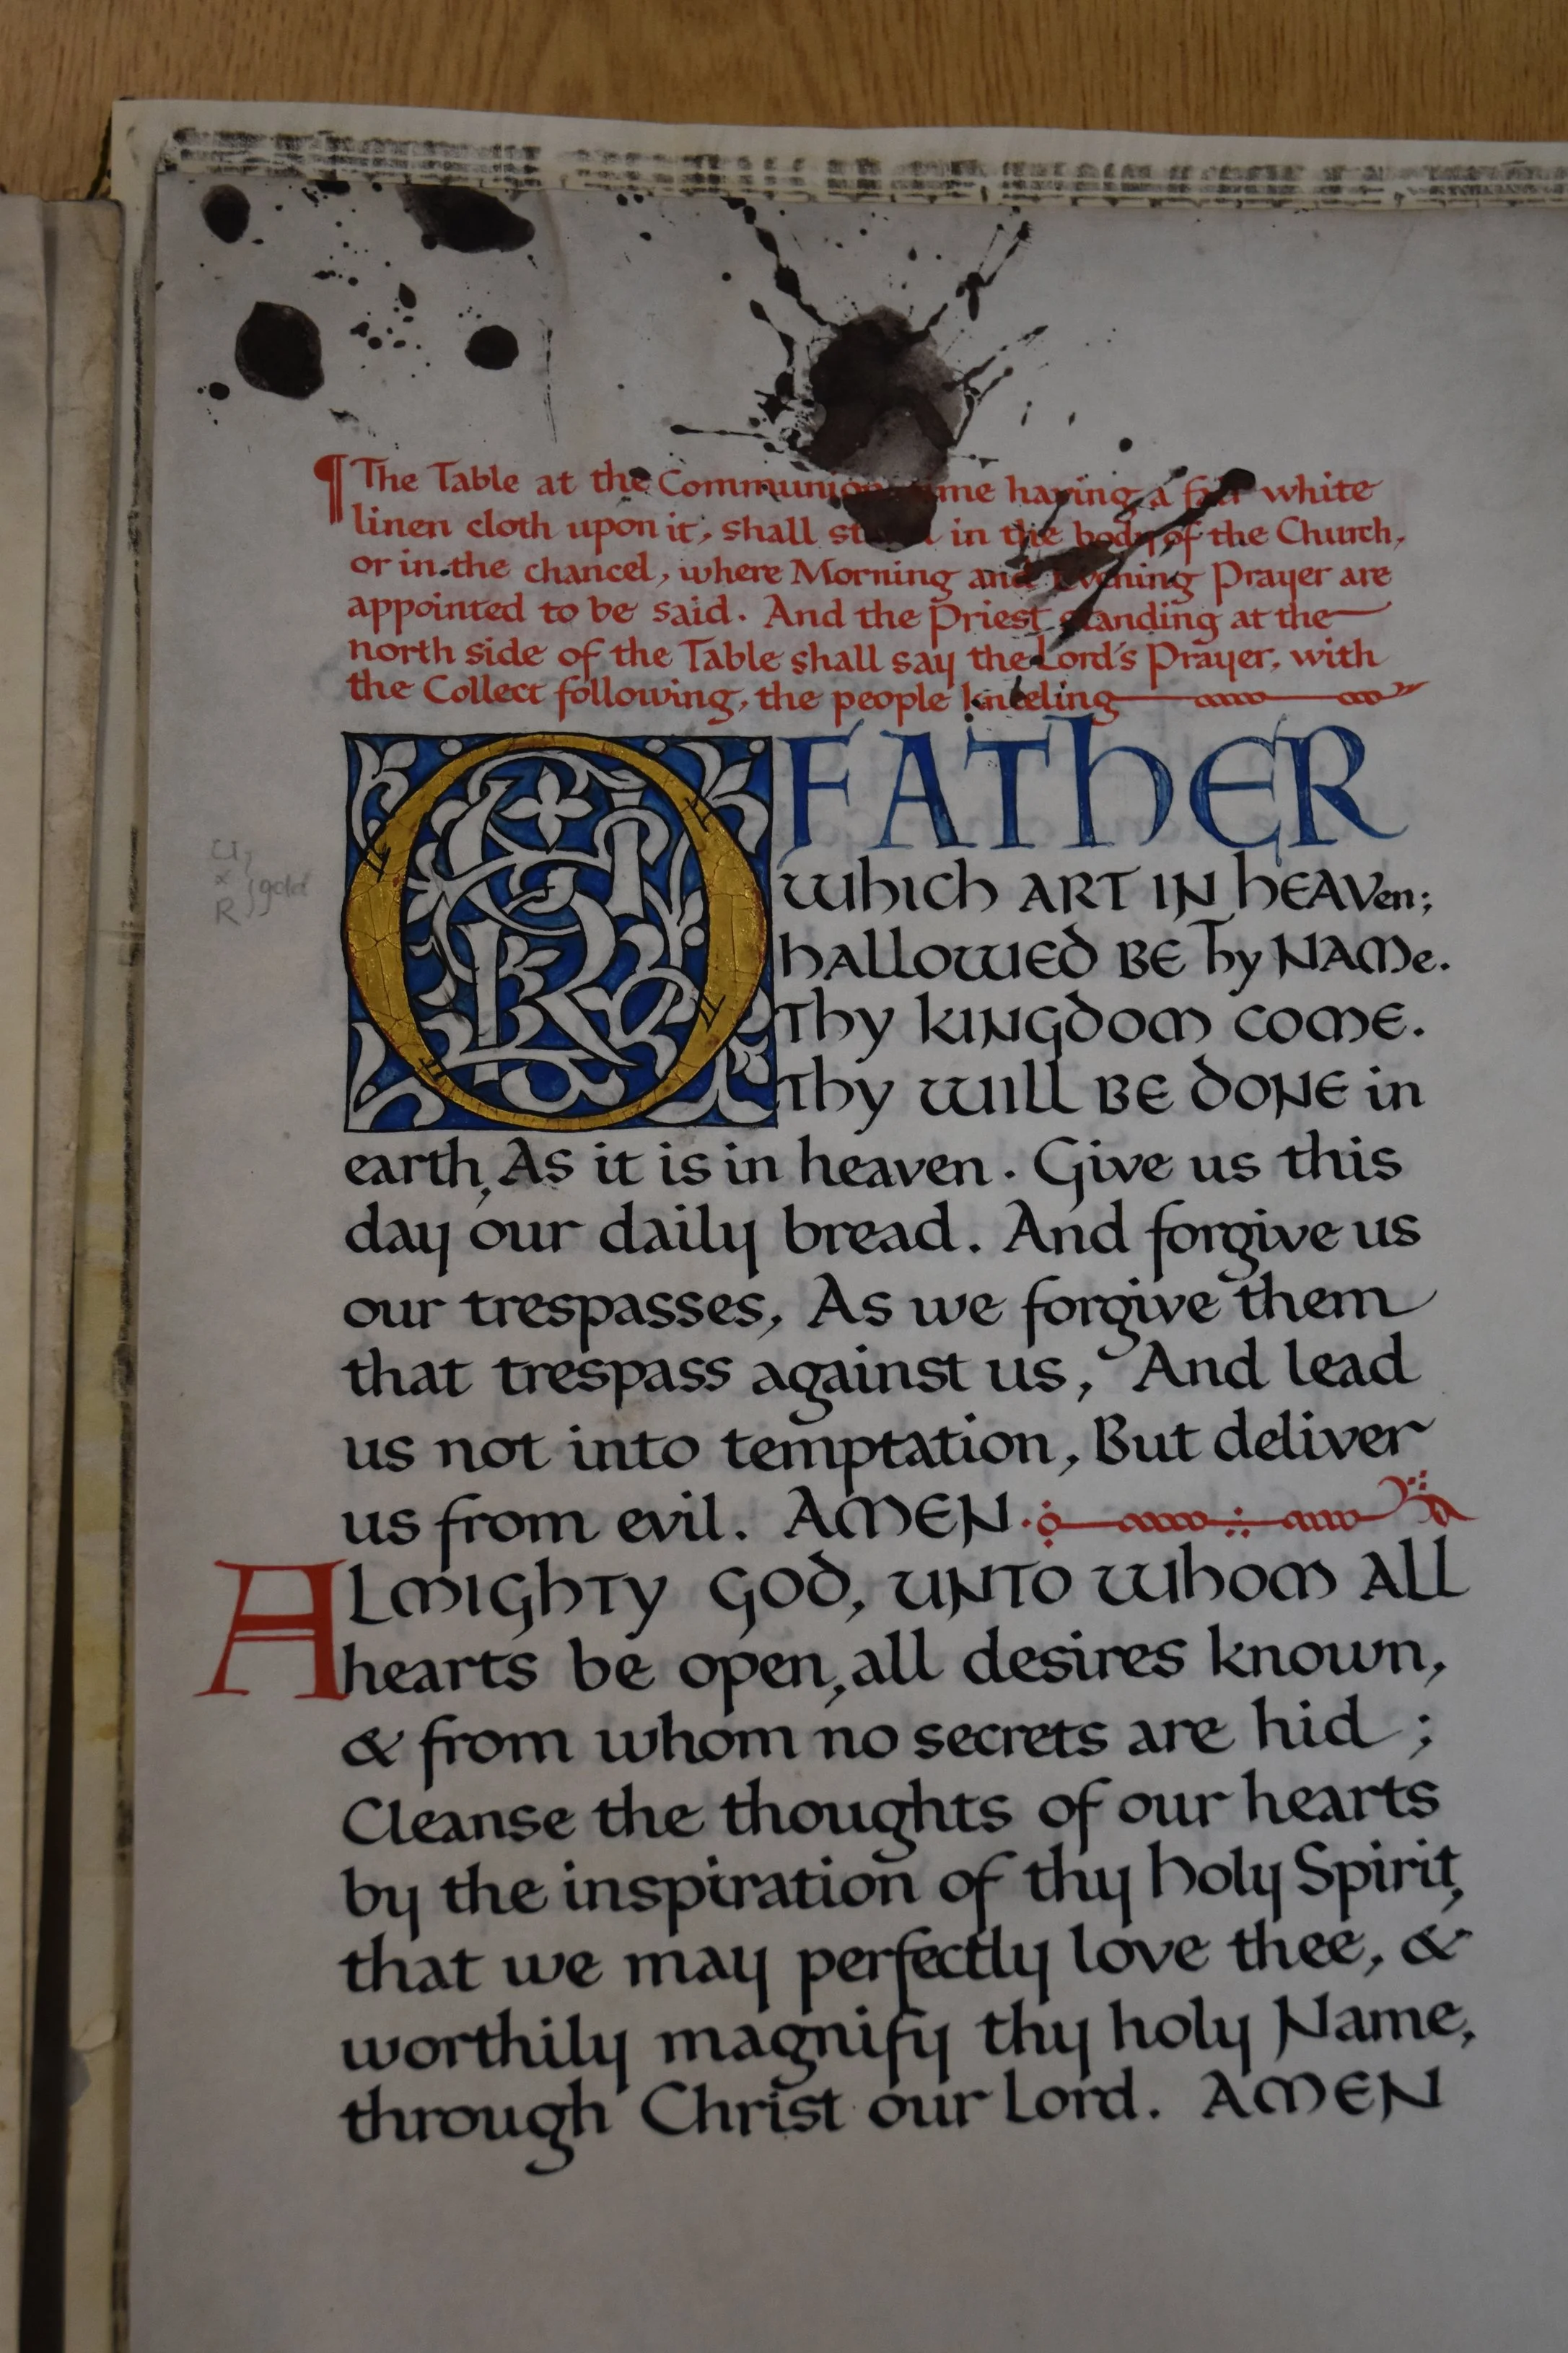 ¶ The Table at the Communion me having a fair white
linen cloth upon it, shall st in the body of the Church,
or in the chancel, where Morning and Evening Prayer are
appointed to be said. And the Priest standing at the
north side of the Table shall say the Lord's Prayer, with
the Collect following, the people kneeling
O FATHER
WHICH ART IN HEAVen;
HALLOWED BE Thy NAMe.
Thy KINGDOM COME.
Thy WILL BE DONE in
earth, As it is in heaven. Give us this
day our daily bread. And forgive us
our trespasses, As we forgive them
that trespass against us, And lead
us not into temptation, But deliver
us from evil. AMEN.
ALMIGHTY GOD, UNTO WHOM ALL
hearts be open, all desires known,
& from whom no secrets are hid ;
Cleanse the thoughts of our hearts
by the inspiration of thy holy Spirit,
that we may perfectly love thee, &
worthily magnify thy holy Name,
through Christ our Lord. AMEN
R gold